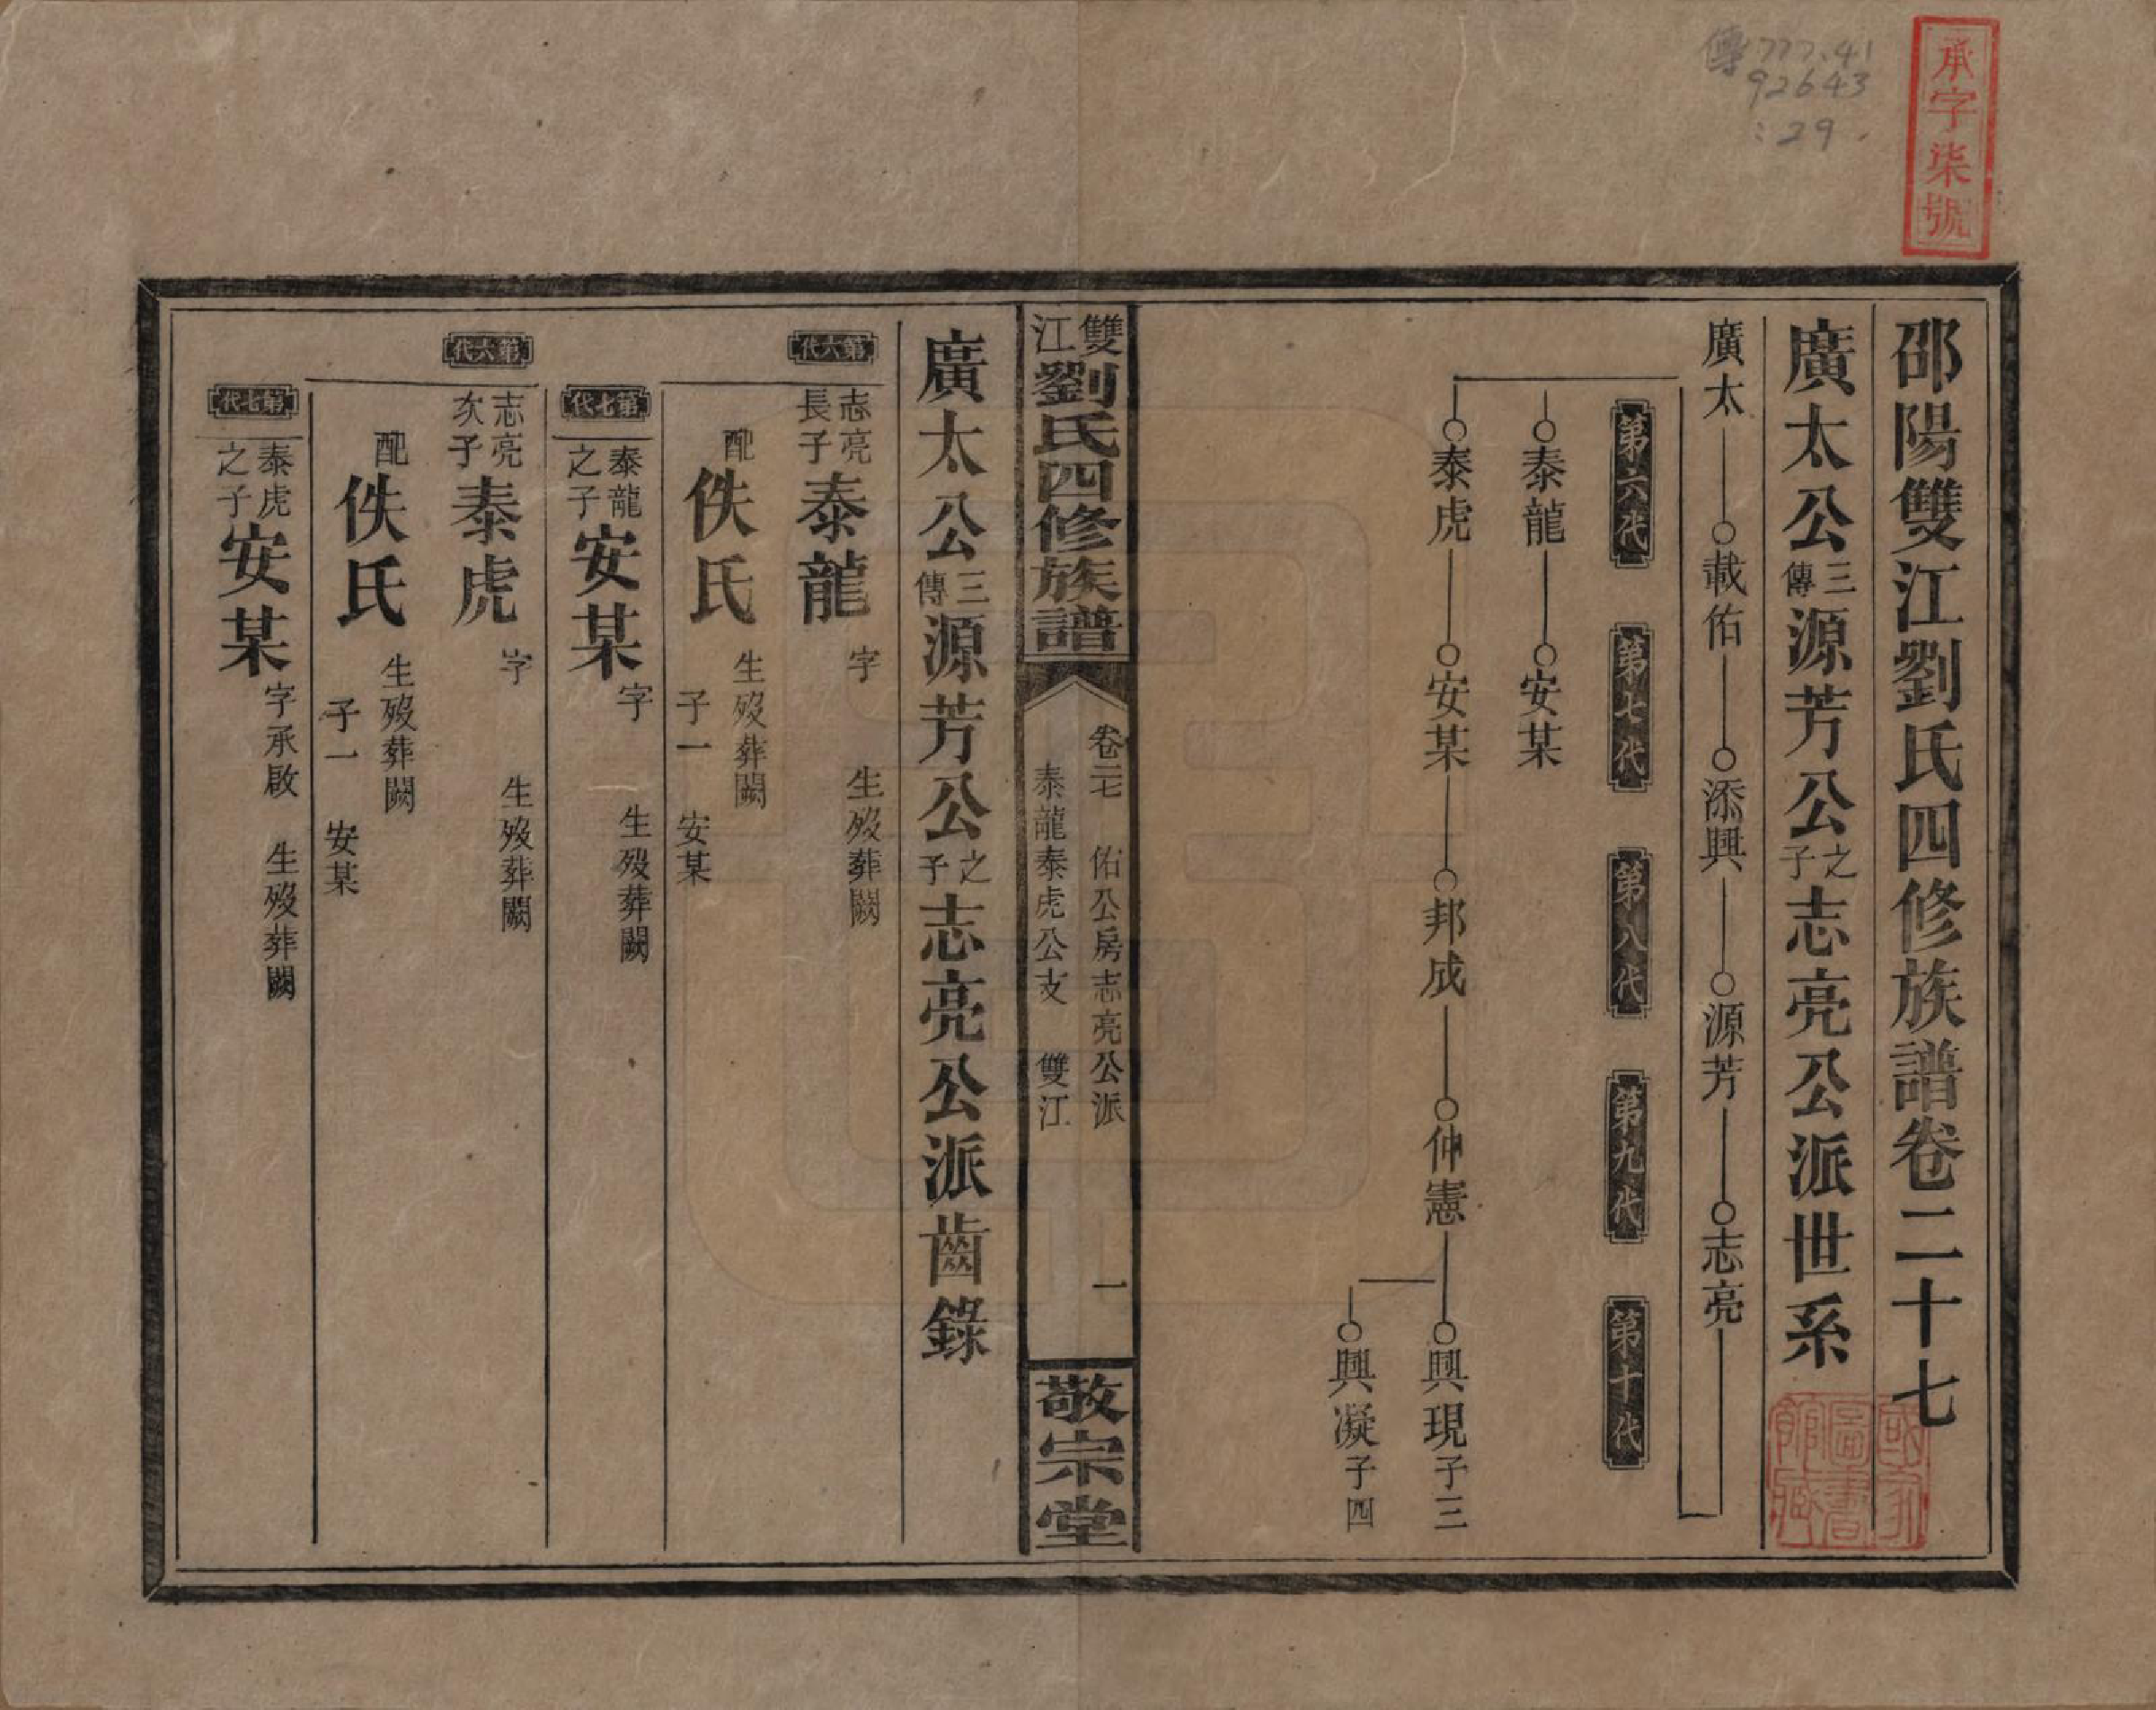 承字柒號
傳777.41
92643
:29.
邵陽雙江劉氏四修族譜卷二十七
廣太公三傳源芳公之子志亮公派世系
廣太 載佑 添興 源芳 志亮
第六代 第七代 第八代 第九代 第十代
泰龍 安某
泰虎 安某 邦成 仲憲 興現 子三
興凝 子四
國家圖書館藏
雙江劉氏四修族譜
卷二七 佑公房志亮公派 一
泰龍泰虎公支 雙江
敬宗堂
廣太公三傳源芳公之子志亮公派齒錄
第六代
志亮長子泰龍 字 生歿葬闕
配佚氏 生歿葬闕
子一 安某
第七代
泰龍之子安某 字 生歿葬闕
第六代
志亮次子泰虎 字 生歿葬闕
配佚氏 生歿葬闕
子一 安某
第七代
泰虎之子安某 字承啟 生歿葬闕